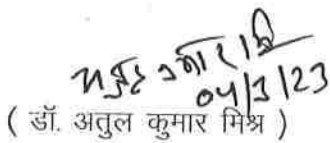 04/3/23
( डॉ. अतुल कुमार मिश्र )